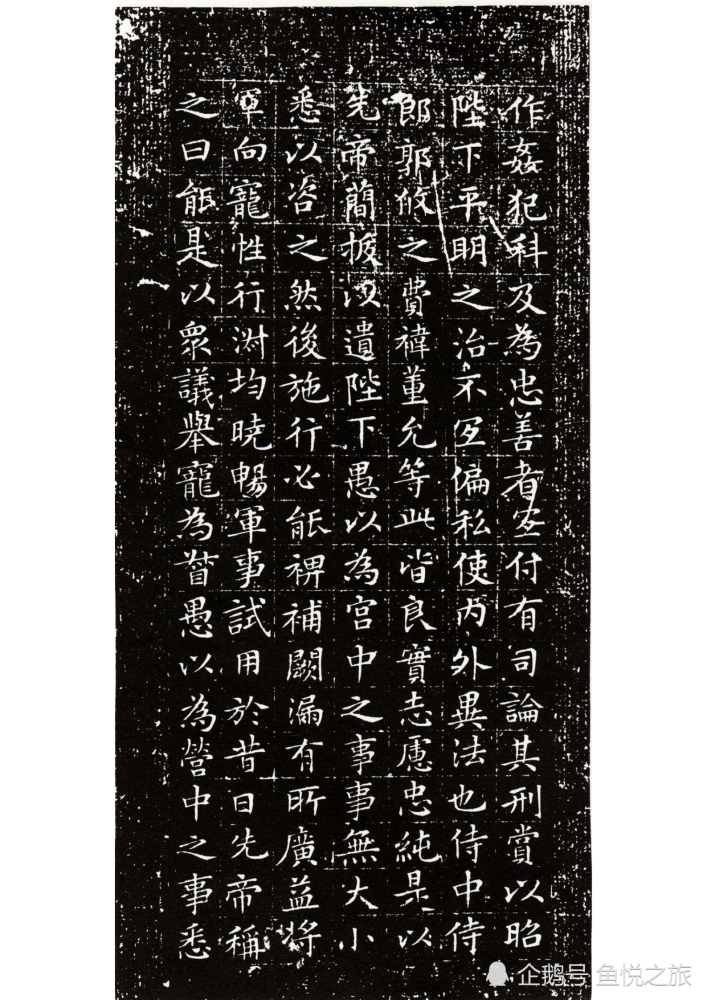 作姦犯科及為忠善者宜付有司論其刑賞以昭
陛下平明之治不宜偏私使內外異法也侍中侍
郎郭攸之費禕董允等此皆良實志慮忠純是以
先帝蕳拔以遺陛下愚以為宫中之事事無大小
悉以咨之然後施行必能裨補闕漏有所廣益將
軍向寵性行淑均曉暢軍事試用於昔日先帝稱
之曰能是以衆議舉寵為督愚以為營中之事悉
企鹅号 鱼悦之旅